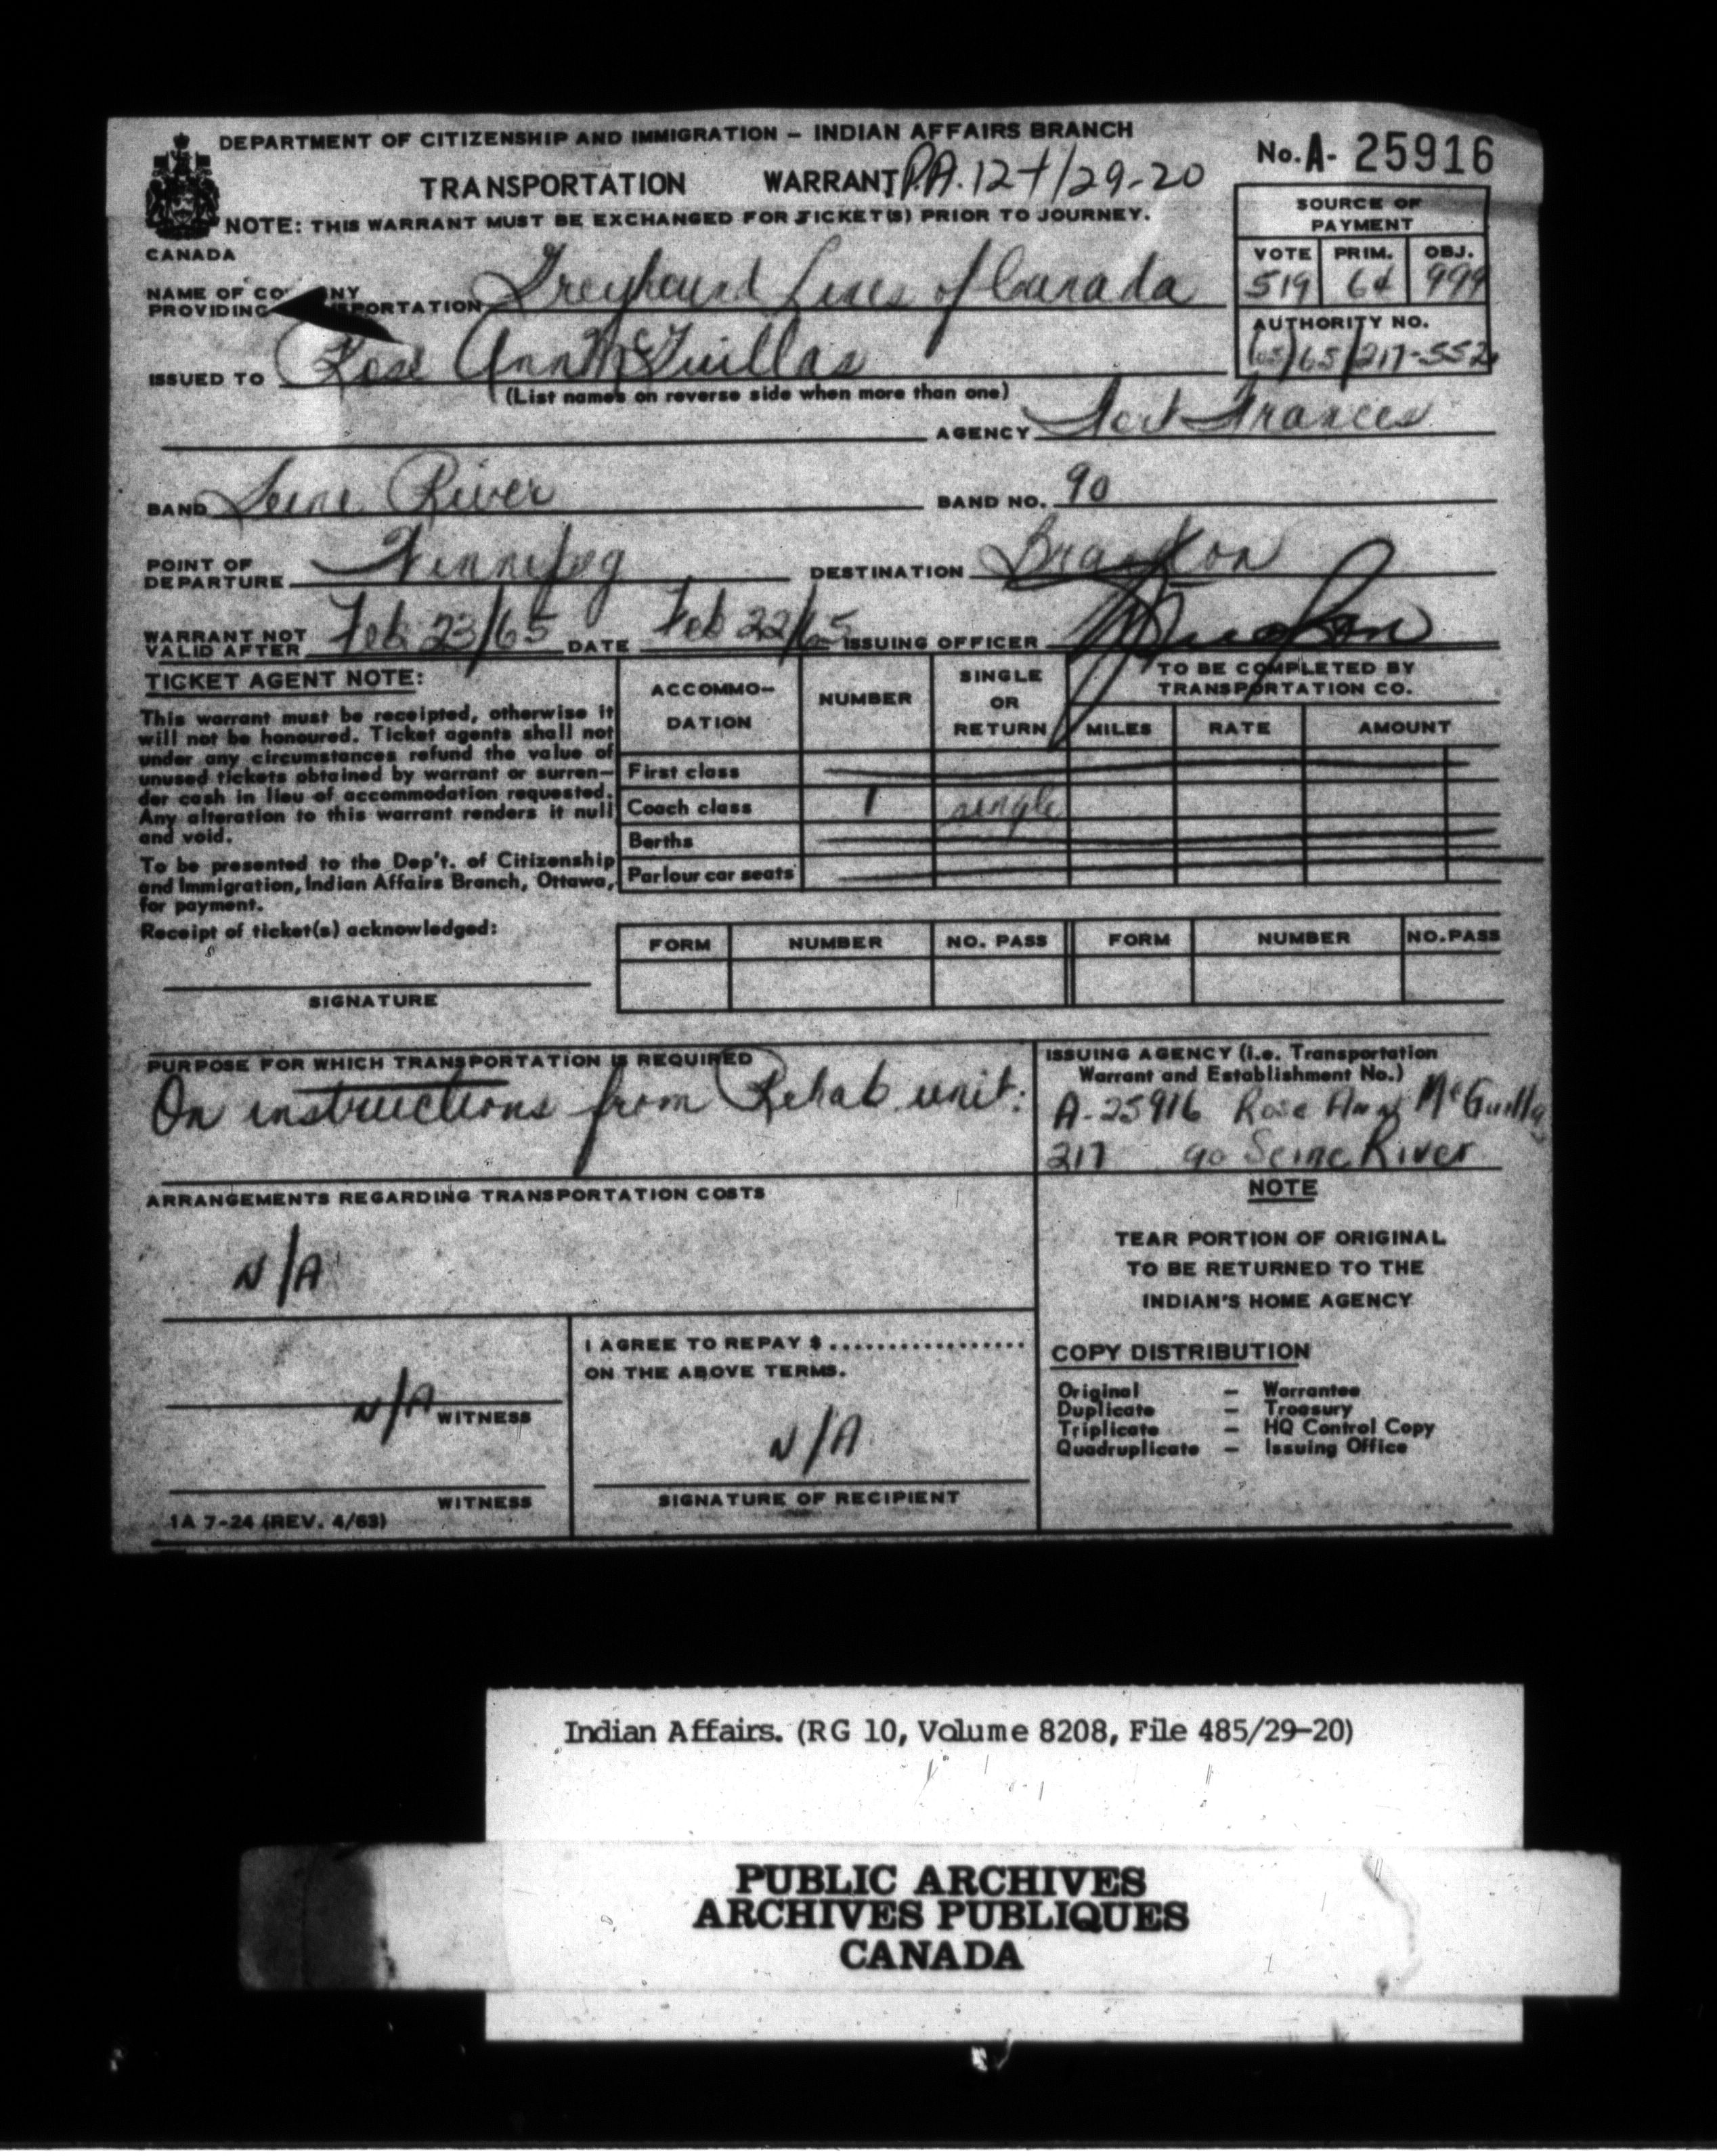 DEPARTMENT OF CITIZENSHIP AND IMMIGRATION – INDIAN AFFAIRS BRANCH
No. A- 25916
TRANSPORTATION WARRANT P.A. 12-1/29-20
NOTE: THIS WARRANT MUST BE EXCHANGED FOR TICKET(S) PRIOR TO JOURNEY.
CANADA
SOURCE OF
PAYMENT
VOTE PRIM. OBJ.
519 64 999
AUTHORITY NO.
65/217-552
NAME OF CO NY
PROVIDING SPORTATION Greyhound Lines of Canada
ISSUED TO Rose Ann McGuillas
(List names on reverse side when more than one)
AGENCY Fort Frances
BAND Seine River BAND NO. 90
POINT OF
DEPARTURE Winnipeg DESTINATION Brandon
WARRANT NOT
VALID AFTER Feb 23/65 DATE Feb 22/65 ISSUING OFFICER
TICKET AGENT NOTE:
This warrant must be receipted, otherwise it
will not be honoured. Ticket agents shall not
under any circumstances refund the value of
unused tickets obtained by warrant or surren-
der cash in lieu of accommodation requested.
Any alteration to this warrant renders it null
and void.
To be presented to the Dep't. of Citizenship
and Immigration, Indian Affairs Branch, Ottawa,
for payment.
Receipt of ticket(s) acknowledged:
SIGNATURE
ACCOMMO-
DATION
NUMBER
SINGLE
OR
RETURN
TO BE COMPLETED BY
TRANSPORTATION CO.
MILES RATE AMOUNT
First class
Coach class 1 single
Berths
Parlour car seats
FORM NUMBER NO. PASS FORM NUMBER NO. PASS
PURPOSE FOR WHICH TRANSPORTATION IS REQUIRED
On instructions from Rehab unit.
ISSUING AGENCY (i.e. Transportation
Warrant and Establishment No.)
A-25916 Rose Ann McGuillas
217 90 Seine River
ARRANGEMENTS REGARDING TRANSPORTATION COSTS
N/A
NOTE
TEAR PORTION OF ORIGINAL
TO BE RETURNED TO THE
INDIAN'S HOME AGENCY
N/A WITNESS
WITNESS
I AGREE TO REPAY $..................
ON THE ABOVE TERMS.
N/A
SIGNATURE OF RECIPIENT
COPY DISTRIBUTION
Original – Warrantee
Duplicate – Treasury
Triplicate – HQ Control Copy
Quadruplicate – Issuing Office
IA 7-24 (REV. 4/63)
Indian Affairs. (RG 10, Volume 8208, File 485/29-20)
PUBLIC ARCHIVES
ARCHIVES PUBLIQUES
CANADA